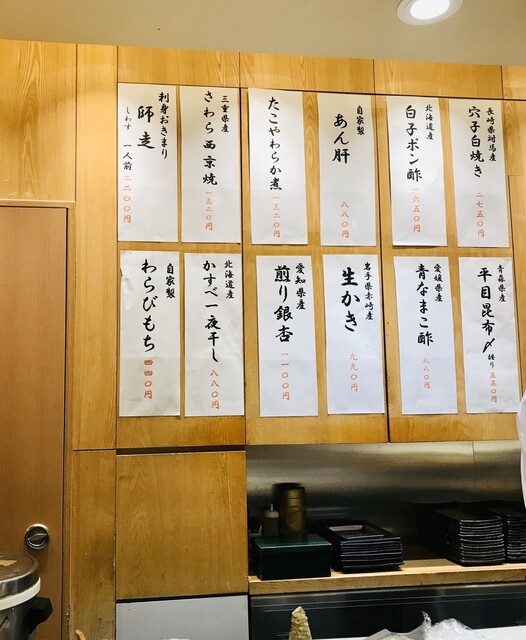 長崎県対馬産
穴子白焼き
二七五〇円
北海道産
白子ポン酢
一六五〇円
自家製
あん肝
八八〇円
たこやわらか煮
一三二〇円
三重県産
さわら西京焼
一三二〇円
刺身おきまり
師走
しわす 一人前 二二〇〇円
青森県産
平目昆布〆
握り 五五〇円
愛媛県産
青なまこ酢
八八〇円
岩手県赤崎産
生かき
九九〇円
愛知県産
煎り銀杏
一一〇〇円
北海道産
かすべ一夜干し
八八〇円
自家製
わらびもち
四四〇円